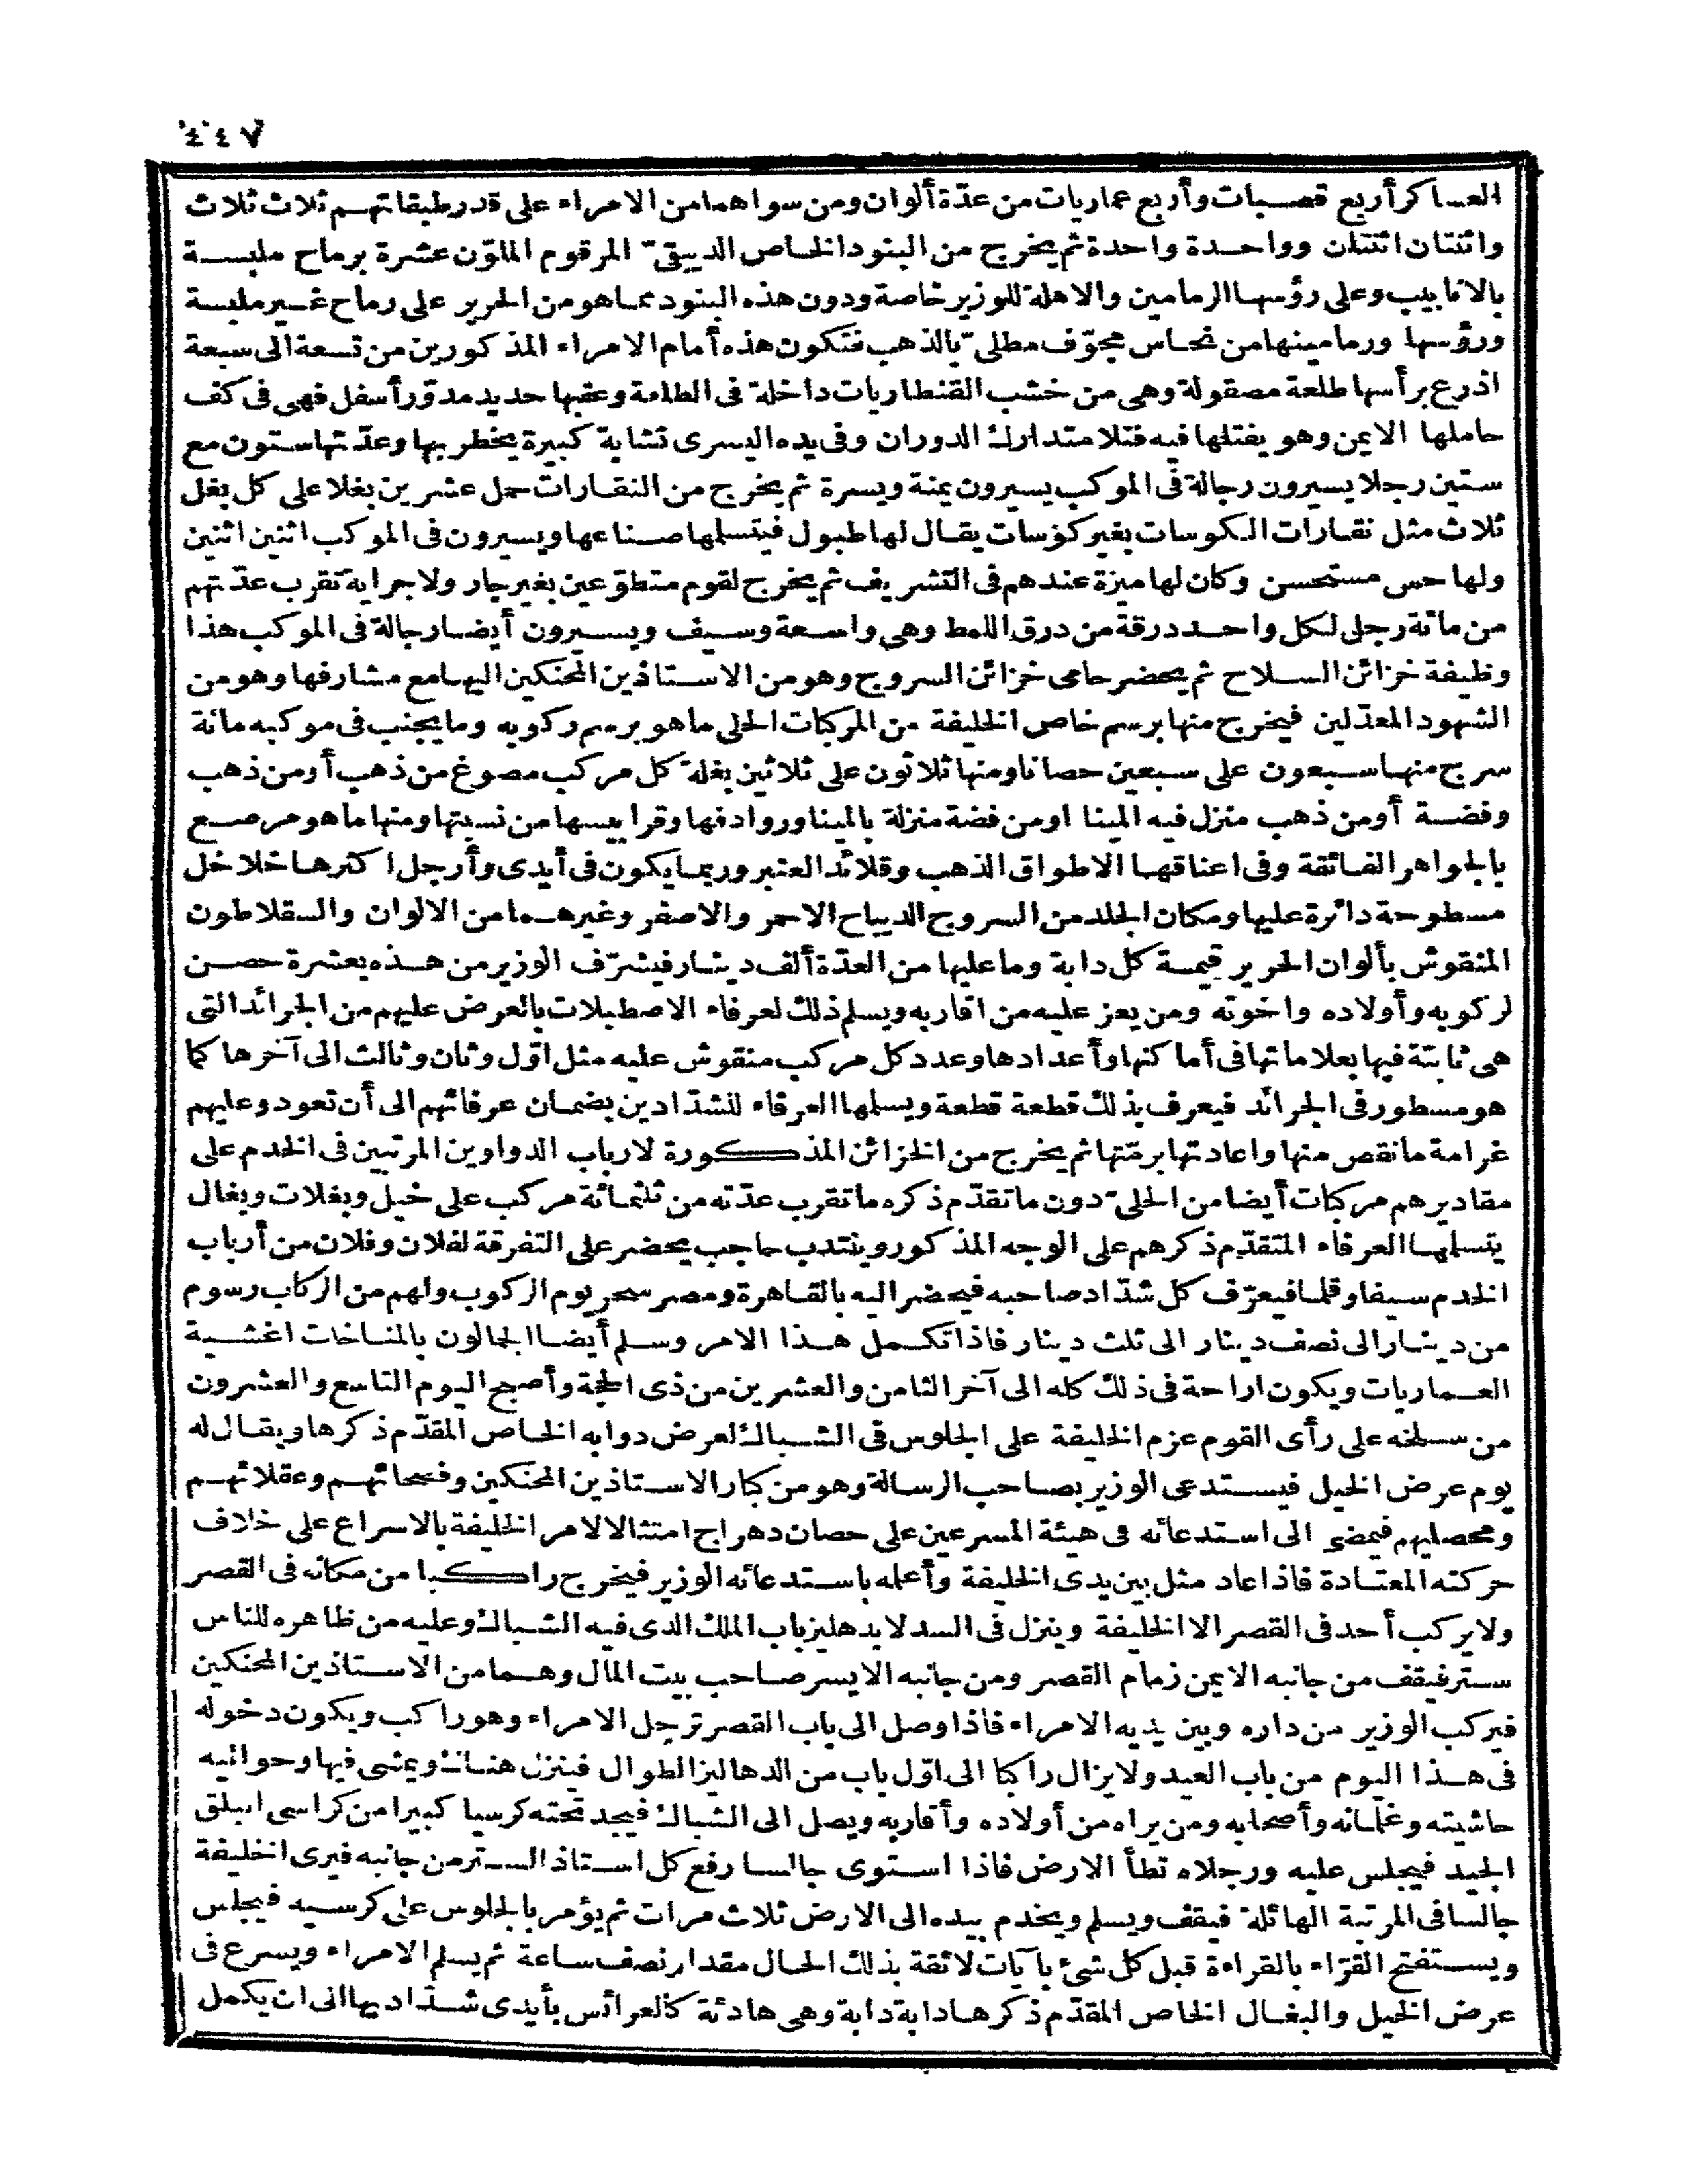 ٤٤٧
العساكر أربع قصبات وأربع عماريات من عدّة ألوان ومن سواهما من الامراء على قدر طبقاتهم ثلاث ثلاث
واثنتان اثنتان وواحدة واحدة ثم يخرج من البنود الخاص الدبيقىّ المرقوم الملوّن عشرة برماح ملبسة
بالانابيب وعلى رؤسها الرمامين والاهلة للوزير خاصة ودون هذه البنود مما هو من الحرير على رماح غير ملبسة
ورؤسها ورمامينها من نحاس مجوّف مطلىّ بالذهب فتكون هذه أمام الامراء المذكورين من تسعة الى سبعة
اذرع برأسها طلعة مصقولة وهى من خشب القنطاريات داخلة فى الطلعة وعقبها حديد مدوّر أسفل فهى فى كف
حاملها الايمن وهو يفتلها فيه فتلا متدارك الدوران وفى يده اليسرى نشابة كبيرة يخطر بها وعدّتها ستون مع
ستين رجلا يسيرون رجالة فى الموكب يسيرون يمنة ويسرة ثم يخرج من النقارات حمل عشرين بغلا على كل بغل
ثلاث مثل نقارات الكوسات بغير كؤسات يقال لها طبول فيتسلمها صناعها ويسيرون فى الموكب اثنين اثنين
ولها حس مستحسن وكان لها ميزة عندهم فى التشريف ثم يخرج لقوم متطوّعين بغير جار ولا جراية تقرب عدّتهم
من مائة رجل لكل واحد درقة من درق اللمط وهى واسعة وسيف ويسيرون أيضا رجالة فى الموكب هذا
وظيفة خزائن السلاح ثم يحضر حامى خزائن السروج وهو من الاستاذين المحنكين اليها مع مشارفها وهو من
الشهود المعدّلين فيخرج منها برسم خاص الخليفة من المركبات الحلى ما هو برسم ركوبه وما يجنب فى موكبه مائة
سرج منها سبعون على سبعين حصانا ومنها ثلاثون على ثلاثين بغلة كل مركب مصوغ من ذهب أو من ذهب
وفضة أو من ذهب منزل فيه المينا او من فضة منزلة بالمينا وروادفها وقرابيسها من نسبتها ومنها ما هو مرصع
بالجواهر الفائقة وفى اعناقها الاطواق الذهب وقلائد العنبر وربما يكون فى أيدى وأرجل اكثرها خلاخل
مسطوحة دائرة عليها ومكان الجلد من السروج الديباج الاحمر والاصفر وغيرهما من الالوان والسقلاطون
المنقوش بألوان الحرير قيمة كل دابة وما عليها من العدّة ألف دينار فيشرّف الوزير من هذه بعشرة حصن
لركوبه وأولاده واخوته ومن يعز عليه من اقاربه ويسلم ذلك لعرفاء الاصطبلات بالعرض عليهم من الجرائد التى
هى ثابتة فيها بعلاماتها فى أماكنها وأعدادها وعدد كل مركب منقوش عليه مثل اوّل وثان وثالث الى آخرها كما
هو مسطور فى الجرائد فيعرف بذلك قطعة قطعة ويسلمها العرفاء للشدّادين بضمان عرفائهم الى أن تعود وعليهم
غرامة ما نقص منها واعادتها برمّتها ثم يخرج من الخزائن المذكورة لارباب الدواوين المرتبين فى الخدم على
مقاديرهم مركبات أيضا من الحلىّ دون ما تقدّم ذكره ما تقرب عدّته من ثلثمائة مركب على خيل وبغلات وبغال
يتسلمها العرفاء المتقدّم ذكرهم على الوجه المذكور وينتدب حاجب يحضر على التفرقة لفلان وفلان من أرباب
الخدم سيفا وقلما فيعرّف كل شدّاد صاحبه فيحضر اليه بالقاهرة ومصر سحر يوم الركوب ولهم من الركاب رسوم
من دينار الى نصف دينار الى ثلث دينار فاذا تكمل هذا الامر وسلم أيضا الجمالون بالمناخات اغشية
العماريات ويكون اراحة فى ذلك كله الى آخر الثامن والعشرين من ذى الحجة وأصبح اليوم التاسع والعشرون
من سلخه على رأى القوم عزم الخليفة على الجلوس فى الشباك لعرض دوابه الخاص المقدّم ذكرها ويقال له
يوم عرض الخيل فيستدعى الوزير بصاحب الرسالة وهو من كبار الاستاذين المحنكين وفصحائهم وعقلائهم
ومحصليهم فيمضى الى استدعائه فى هيئة المسرعين على حصان دهراج امتثالا لامر الخليفة بالاسراع على خلاف
حركته المعتادة فاذا عاد مثل بين يدى الخليفة وأعلمه باستدعائه الوزير فيخرج راكبا من مكانه فى القصر
ولا يركب أحد فى القصر الا الخليفة وينزل فى السدلا بدهليز باب الملك الذى فيه الشباك وعليه من ظاهره للناس
ستر فيقف من جانبه الايمن زمام القصر ومن جانبه الايسر صاحب بيت المال وهما من الاستاذين المحنكين
فيركب الوزير من داره وبين يديه الامراء فاذا وصل الى باب القصر ترجل الامراء وهو راكب ويكون دخوله
فى هذا اليوم من باب العيد ولا يزال راكبا الى اوّل باب من الدهاليز الطوال فينزل هناك ويمشى فيها وحواليه
حاشيته وغلمانه وأصحابه ومن يراه من أولاده وأقاربه ويصل الى الشباك فيجد تحته كرسيا كبيرا من كراسى البلق
الجيد فيجلس عليه ورجلاه تطأ الارض فاذا استوى جالسا رفع كل استاذ الستر من جانبه فيرى الخليفة
جالسا فى المرتبة الهائلة فيقف ويسلم ويخدم بيده الى الارض ثلاث مرات ثم يؤمر بالجلوس على كرسيه فيجلس
ويستفتح القرّاء بالقراءة قبل كل شئ بآيات لائقة بذلك الحال مقدار نصف ساعة ثم يسلم الامراء ويسرع فى
عرض الخيل والبغال الخاص المقدّم ذكرها دابة دابة وهى هادئة كالعرائس بأيدى شدّاديها الى ان يكمل